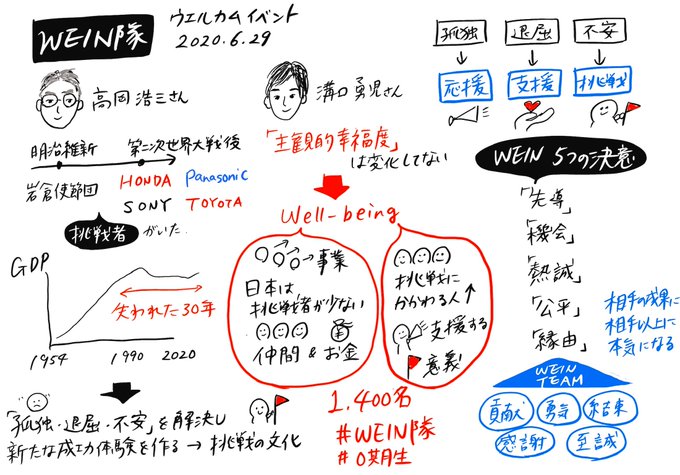 WEIN隊
ウエルカムイベント
2020.6.29
高岡 浩三さん
溝口 勇児さん
明治維新
第二次世界大戦後
岩倉使節団
HONDA
Panasonic
SONY
TOYOTA
挑戦者
がいた
「主観的幸福度」
は変化してない
Well-being
GDP
失われた30年
1954
1990
2020
事業
日本は
挑戦者が少ない
仲間 & お金
挑戦に
かかわる人↑
支援する
意義
「孤独・退屈・不安」を解決し
新たな成功体験を作る → 挑戦の文化
1,400名
#WEIN隊
#0期生
孤独
退屈
不安
応援
支援
挑戦
WEIN 5つの決意
「先導」
「機会」
「熱誠」
「公平」
「縁由」
相手の成果に
相手以上に
本気になる
WEIN
TEAM
貢献
勇気
結束
感謝
至誠